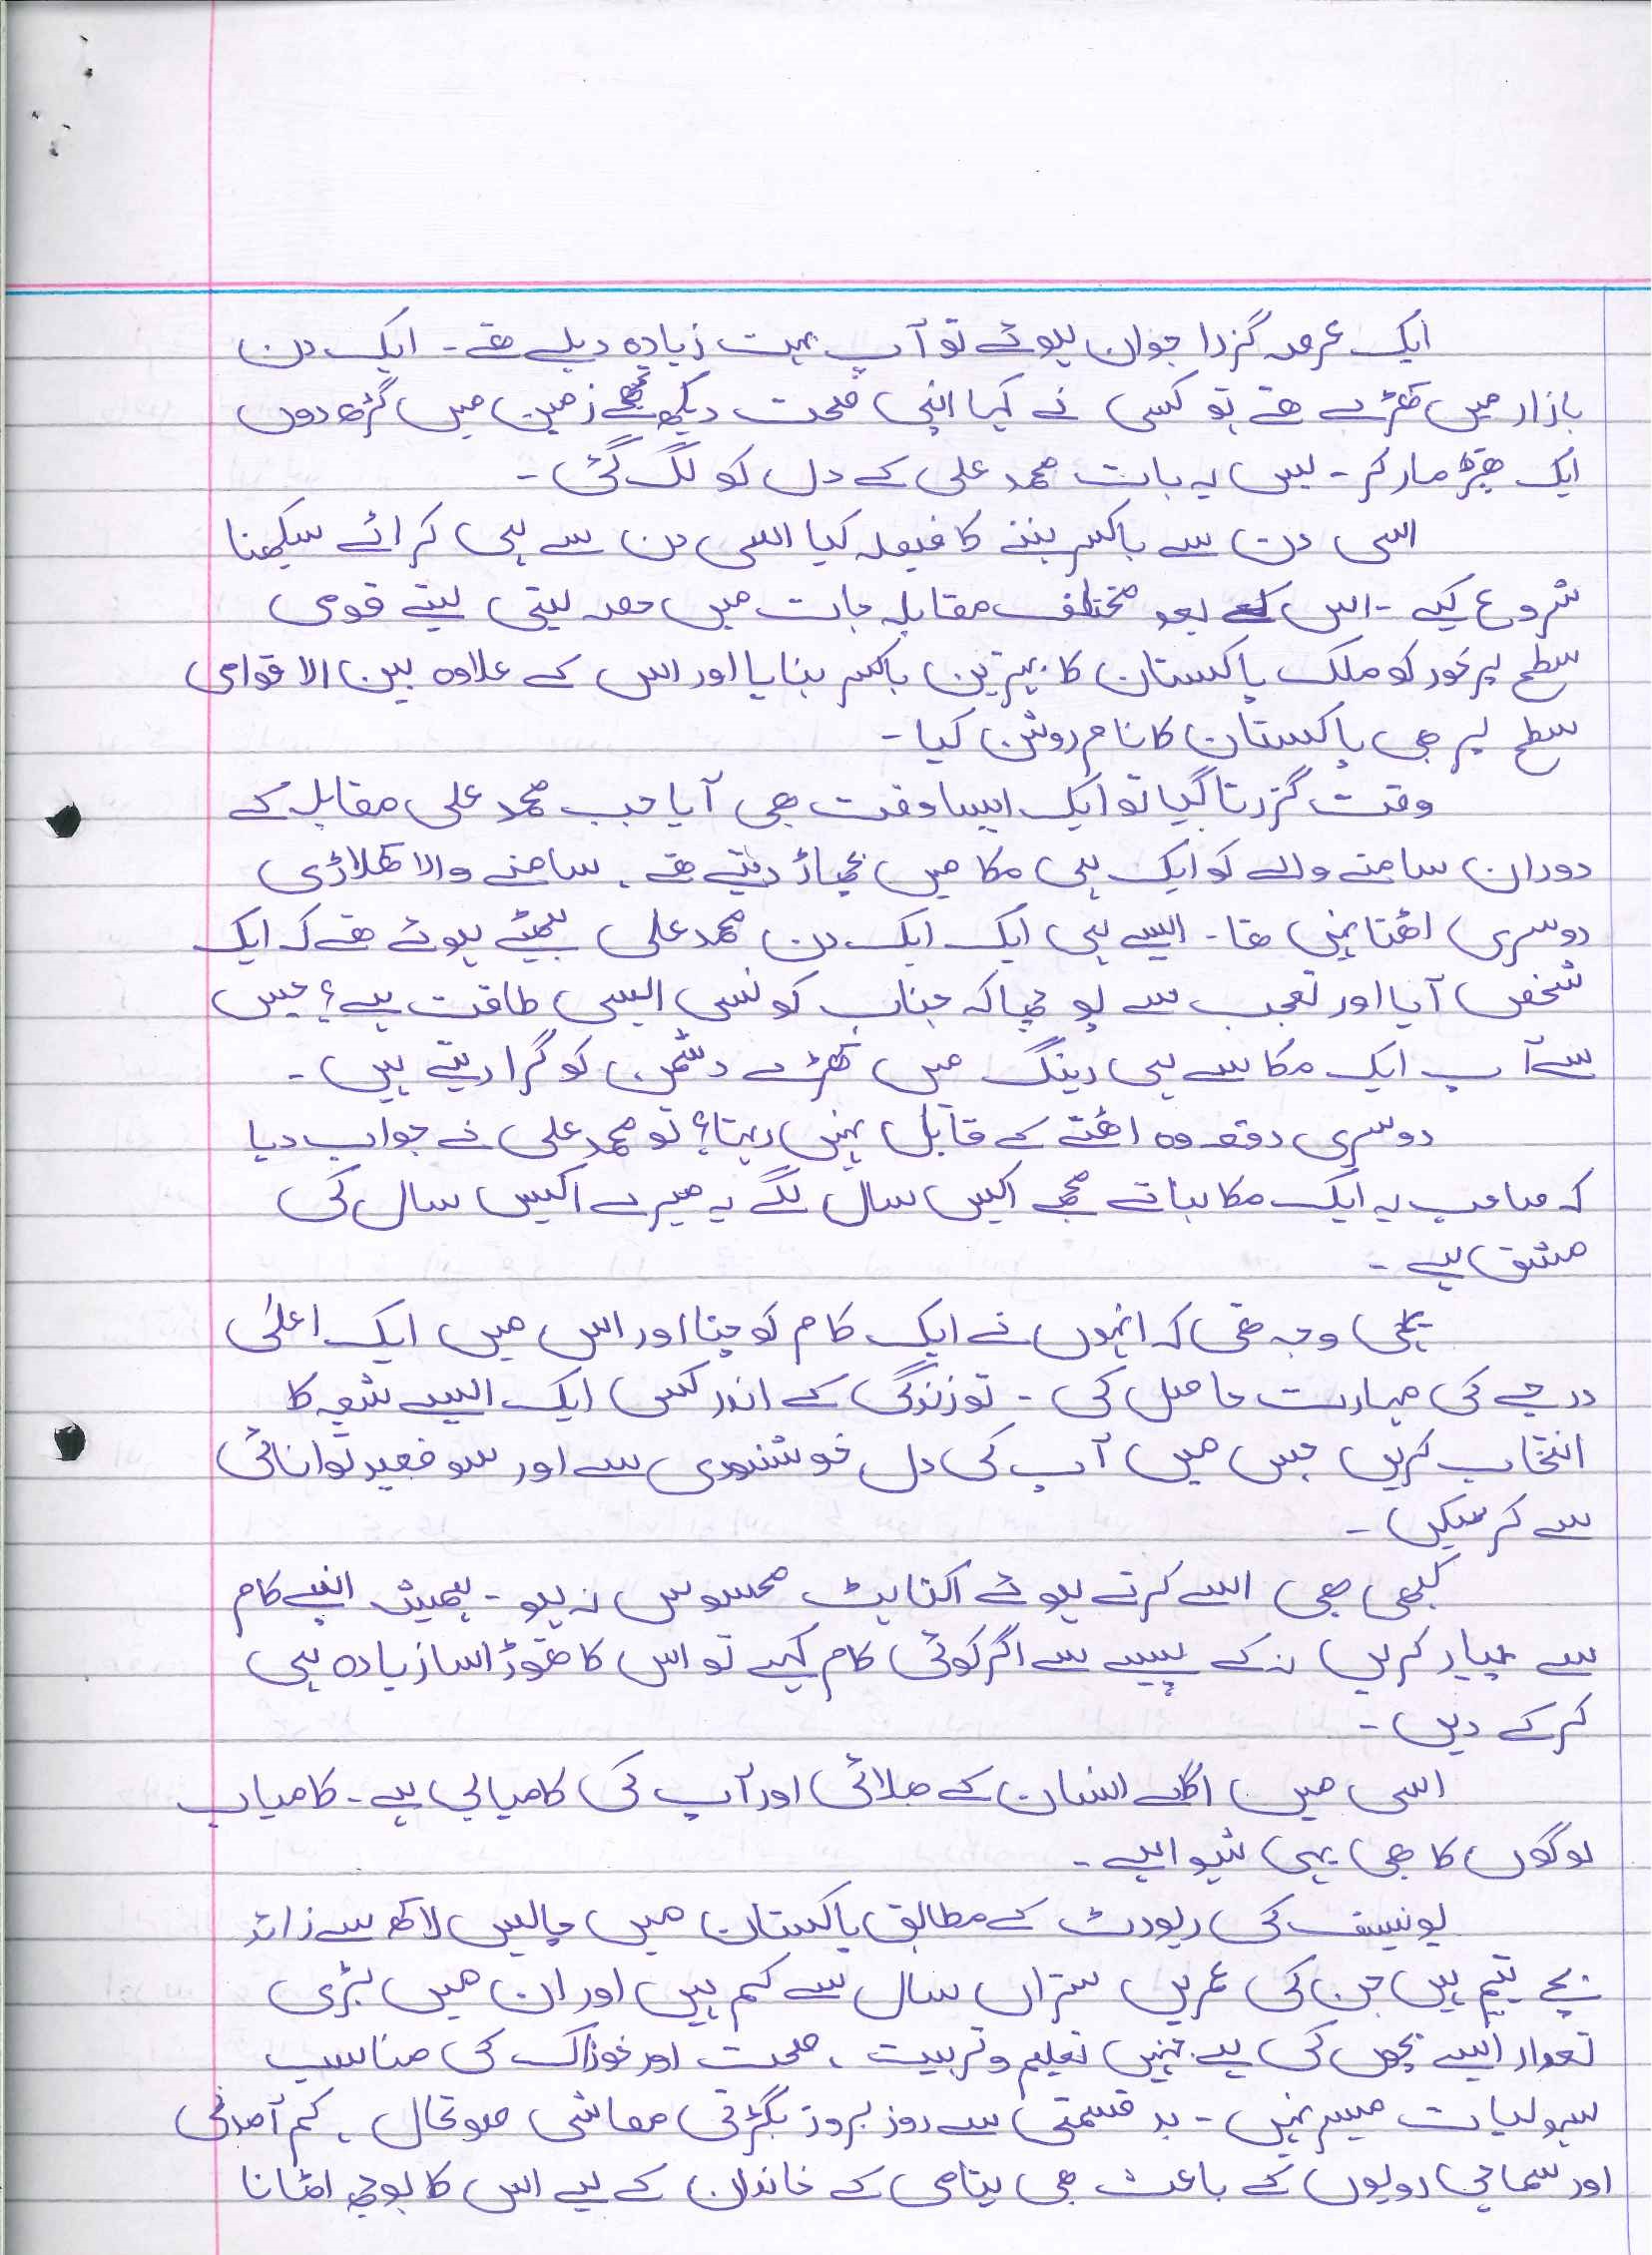 ایک عرصہ گزرا جوان ہوئے تو آپ بہت زیادہ دبلے تھے۔ ایک دن
بازار میں کھڑے تھے تو کسی نے کہا اپنی صحت دیکھ تجھے زمین میں گڑھ دوں
ایک تھپڑ مار کر۔ بس یہ بات محمد علی کے دل کو لگ گئی۔
اسی دن سے باکسر بننے کا فیصلہ کیا اسی دن سے ہی کرائے سیکھنا
شروع کیے۔ اس کے بعد مختلف مقابلہ جات میں حصہ لیتی لیتے قومی
سطح پر خود کو ملک پاکستان کا بہترین باکسر بنایا اور اس کے علاوہ بین الاقوامی
سطح پر بھی پاکستان کا نام روشن کیا۔
وقت گزرتا گیا تو ایک ایسا وقت بھی آیا جب محمد علی مقابلہ کے
دوران سامنے والے کو ایک ہی مکا میں پچھاڑ دیتے تھے۔ سامنے والا کھلاڑی
دوسری اٹھتا نہیں تھا۔ ایسے ہی ایک ایک دن محمد علی بیٹھے ہوئے تھے کہ ایک
شخص آیا اور تعجب سے پوچھا کہ جناب کونسی ایسی طاقت ہے؟ جس
سے آپ ایک مکا سے ہی رینگ میں کھڑے دشمن کو گرا دیتے ہیں۔
دوسری دفعہ وہ اٹھنے کے قابل نہیں رہتا؟ تو محمد علی نے جواب دیا
کہ صاحب یہ ایک مکا بناتے مجھے اکیس سال لگے یہ میرے اکیس سال کی
مشق ہے۔
یہی وجہ تھی کہ انہوں نے ایک کام کو چنا اور اس میں ایک اعلیٰ
درجے کی مہارت حاصل کی۔ تو زندگی کے اندر کسی ایک ایسے شعبہ کا
انتخاب کریں جس میں آپ کی دل خوشنودی سے اور سو فیصد توانائی
سے کر سکیں۔
کبھی بھی اسے کرتے ہوئے اکتاہٹ محسوس نہ ہو۔ ہمیشہ اپنے کام
سے پیار کریں نہ کے پیسے سے اگر کوئی کام کہے تو اس کا تھوڑا سا زیادہ ہی
کر کے دیں۔
اسی میں اگلے انسان کے بھلائی اور آپ کی کامیابی ہے۔ کامیاب
لوگوں کا بھی یہی شیوا ہے۔
یونیسف کی رپورٹ کے مطابق پاکستان میں چالیس لاکھ سے زائد
بچے یتیم ہیں جن کی عمریں ستراں سال سے کم ہیں اور ان میں بڑی
تعداد ایسے بچوں کی ہے جنہیں تعلیم و تربیت، صحت اور خوراک کی مناسب
سہولیات میسر نہیں۔ بد قسمتی سے روز بروز بگڑتی معاشی صوتحال، کم آمدنی
اور سماجی رویوں کے باعث بھی یتامی کے خاندان کے لیے اس کا بوجھ اٹھانا